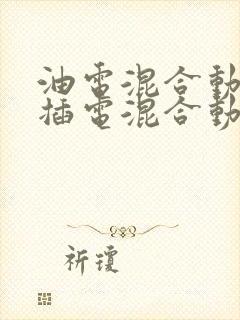 油電混合動
插電混合動
祈瓊